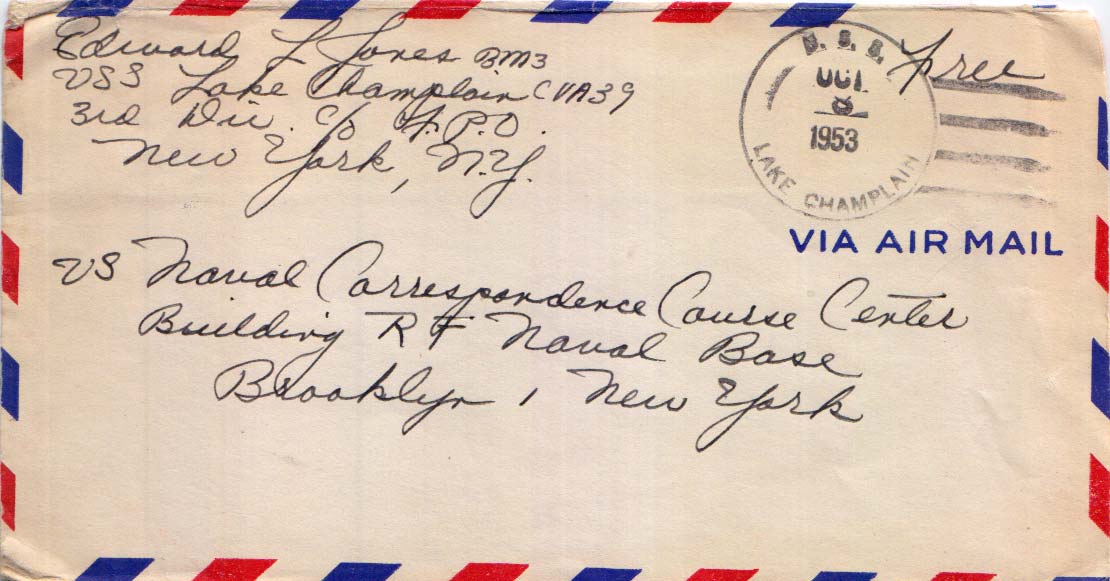 Edward L Jones BM3
USS Lake Champlain CVA39
3rd Div. c/o F.P.O.
New York, N.Y.
U. S. S.
OCT
8
1953
LAKE CHAMPLAIN
Free
VIA AIR MAIL
US Naval Correspondence Course Center
Building RF Naval Base
Brooklyn 1 New York